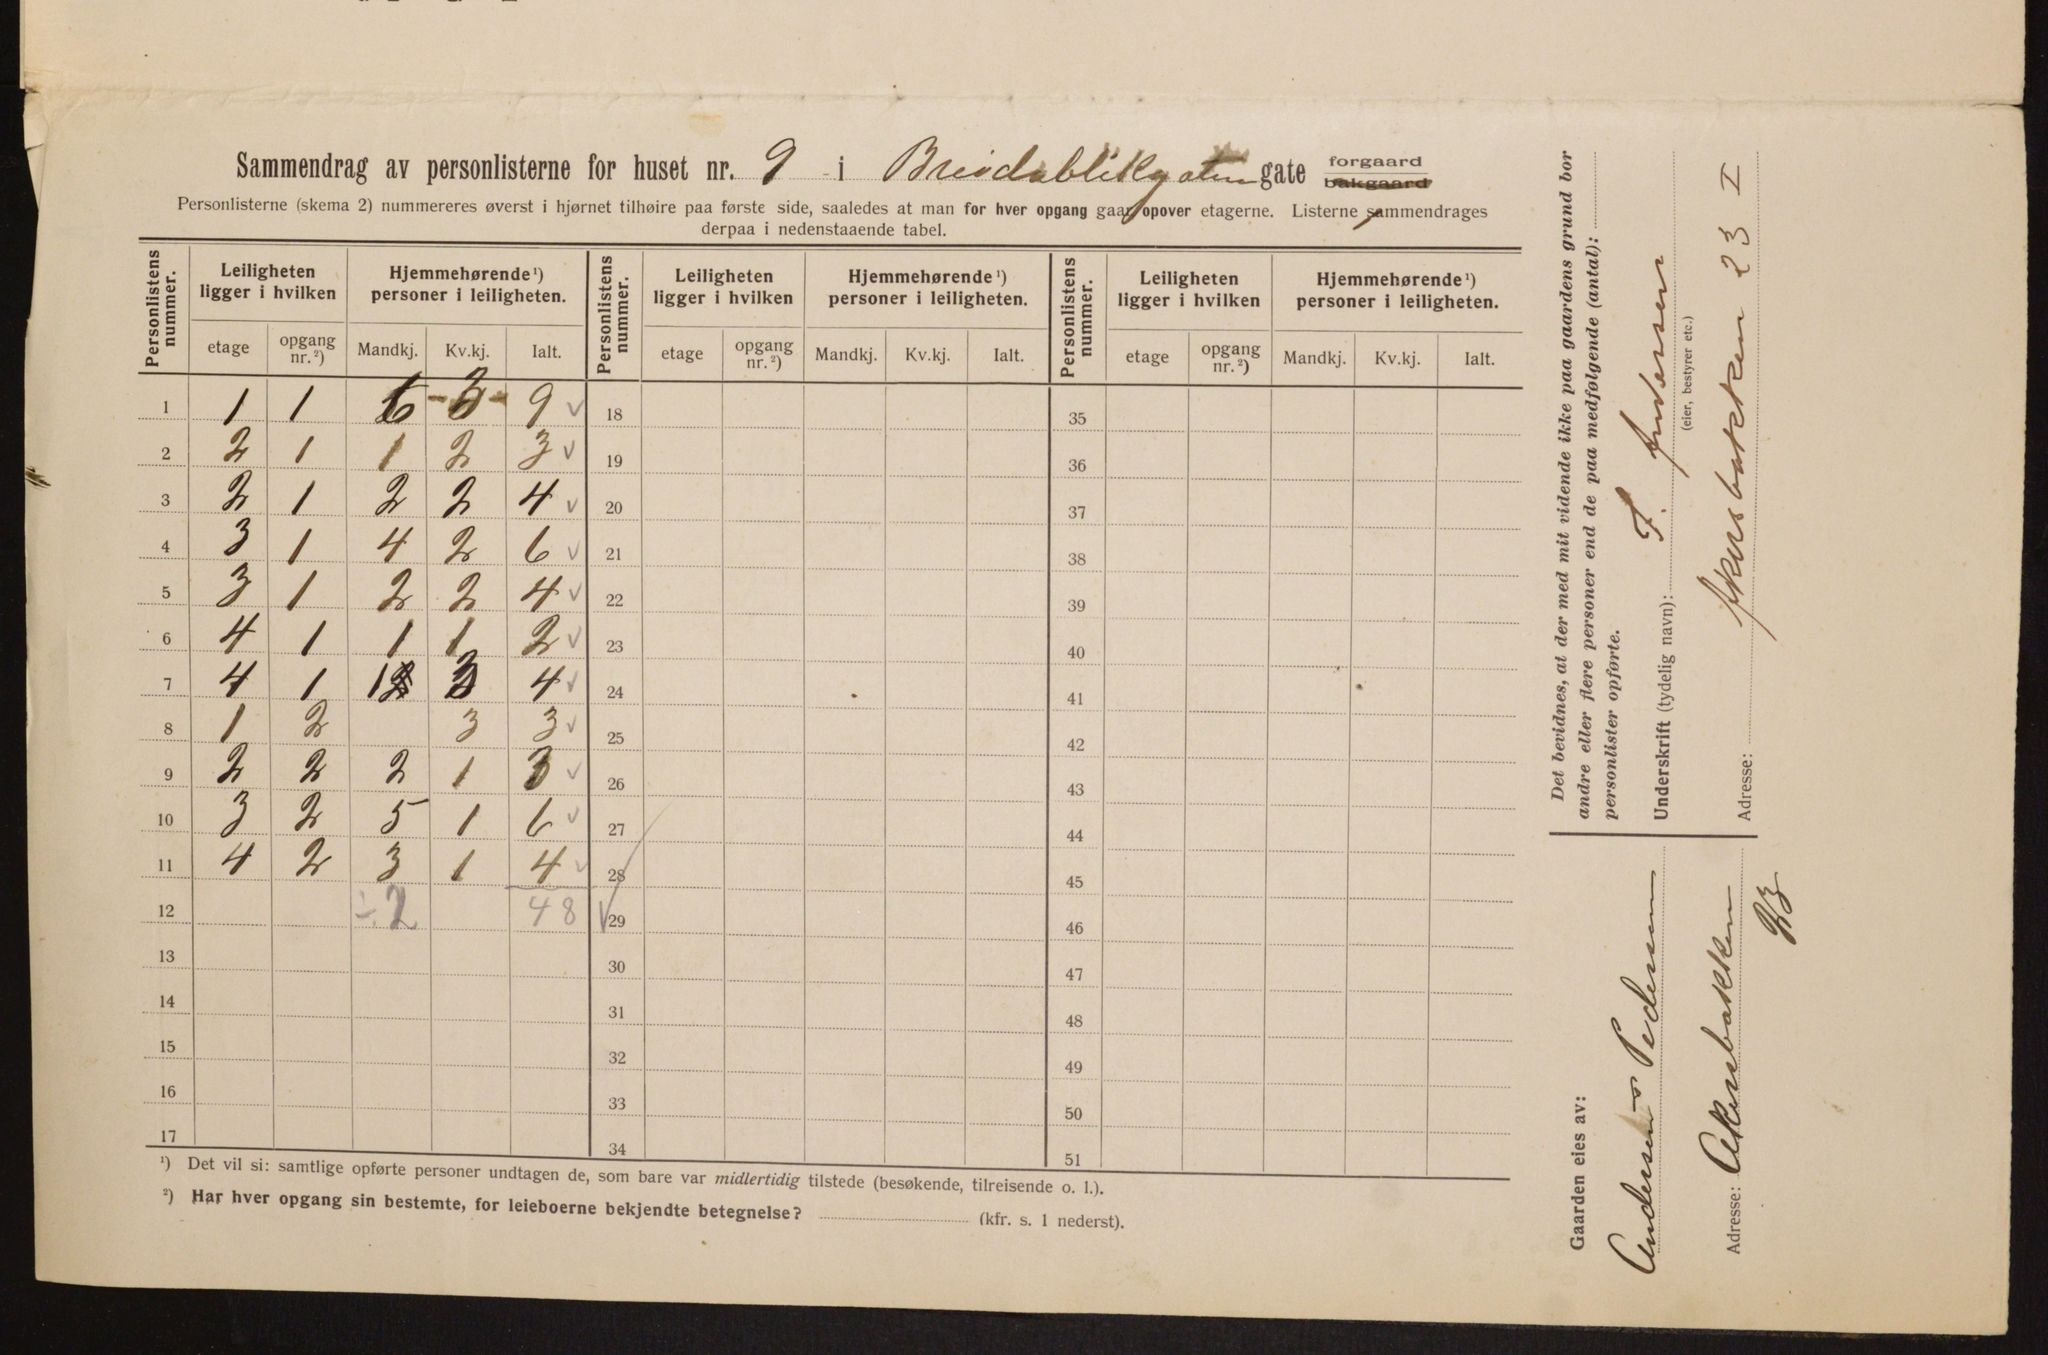 Sammendrag av personlisterne for huset nr. 9 i Breidablikgaten gate forgaard bakgaard
Personlisterne (skema 2) nummereres øverst i hjørnet tilhøire paa første side, saaledes at man for hver opgang gaar opover etagerne. Listerne sammendrages
derpaa i nedenstaaende tabel.
Personlistens nummer. Leiligheten ligger i hvilken Hjemmehørende ¹) personer i leiligheten. Personlistens nummer. Leiligheten ligger i hvilken Hjemmehørende ¹) personer i leiligheten. Personlistens nummer. Leiligheten ligger i hvilken Hjemmehørende ¹) personer i leiligheten.
etage opgang nr. ²) Mandkj. Kv.kj. Ialt. etage opgang nr. ²) Mandkj. Kv.kj. Ialt. etage opgang nr. ²) Mandkj. Kv.kj. Ialt.
1 1 1 6 3 9 18 35
2 2 1 1 2 3 19 36
3 2 1 2 2 4 20 37
4 3 1 4 2 6 21 38
5 3 1 2 2 4 22 39
6 4 1 1 1 2 23 40
7 4 1 1 3 4 24 41
8 1 2 3 3 25 42
9 2 2 2 1 3 26 43
10 3 2 5 1 6 27 44
11 4 2 3 1 4 28 45
12 ÷2 48 29 46
13 30 47
14 31 48
15 32 49
16 33 50
17 34 51
¹) Det vil si: samtlige opførte personer undtagen de, som bare var midlertidig tilstede (besøkende, tilreisende o. l.).
²) Har hver opgang sin bestemte, for leieboerne bekjendte betegnelse? (kfr. s. 1 nederst).
Det bevidnes, at der med mit vidende ikke paa gaardens grund bor
andre eller flere personer end de paa medfølgende (antal):
personlister opførte.
Underskrift (tydelig navn): F. Andersen
(eier, bestyrer etc.)
Adresse: Akersbakken 23 I
Gaarden eies av:
Andersen Pedersen
Adresse: Akersbakken
23